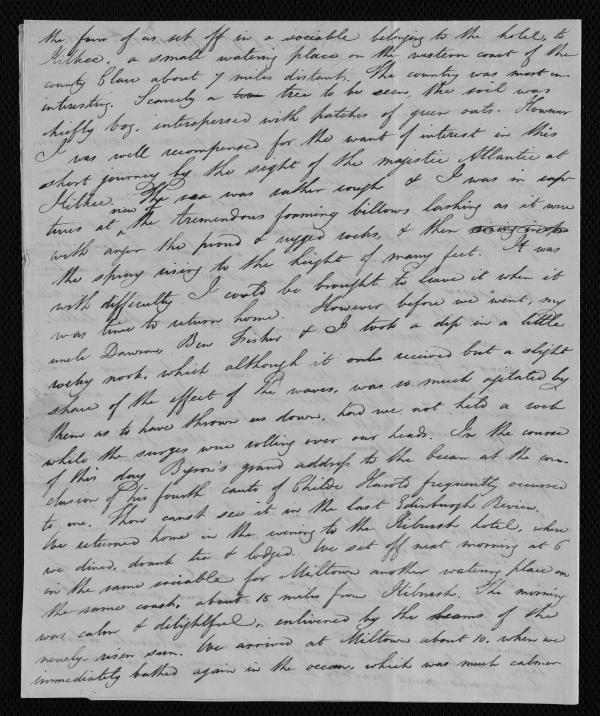 the four of us set off in a sociable belonging to the hotel, to
Kilkee, a small watering place on the western coast of the
county Clare about 7 miles distant. The country was most un-
interesting. Scarcely a tree to be seen, the soil was
chiefly bog, interspersed with patches of green oats. However
I was well recompensed for the want of interest in this
short journey by the sight of the majestic Atlantic at
Kilkee. The sea was rather rough & I was in rap-
tures at view of the tremendous foaming billows lashing as it were
with anger the proud & rugged rocks, & then
the spray rising to the height of many feet. It was
with difficulty I could be brought to leave it when it
was time to return home. However, before we went, my
uncle Dawson, Ben Fisher & I took a dip in a little
rocky nook, which although it only received but a slight
share of the effect of the waves, was so much agitated by
them as to have thrown us down, had we not held a rock
while the surges were rolling over our heads. In the course
of this day Byron's grand address to the ocean at the con-
clusion of his fourth canto of Childe Harold frequently occurred
to me. Thou canst see it in the last Edinburgh Review.
We returned home in the evening to the Kilrush hotel, where
we dined, drank tea & lodged. We set off next morning at 6
in the same sociable for Miltown another watering place on
the same coast, about 18 miles from Kilrush. The morning
was calm & delightful, enlivened by the beams of the
newly risen sun. We arrived at Miltown about 10. when we
immediately bathed again in the ocean, which was much calmer